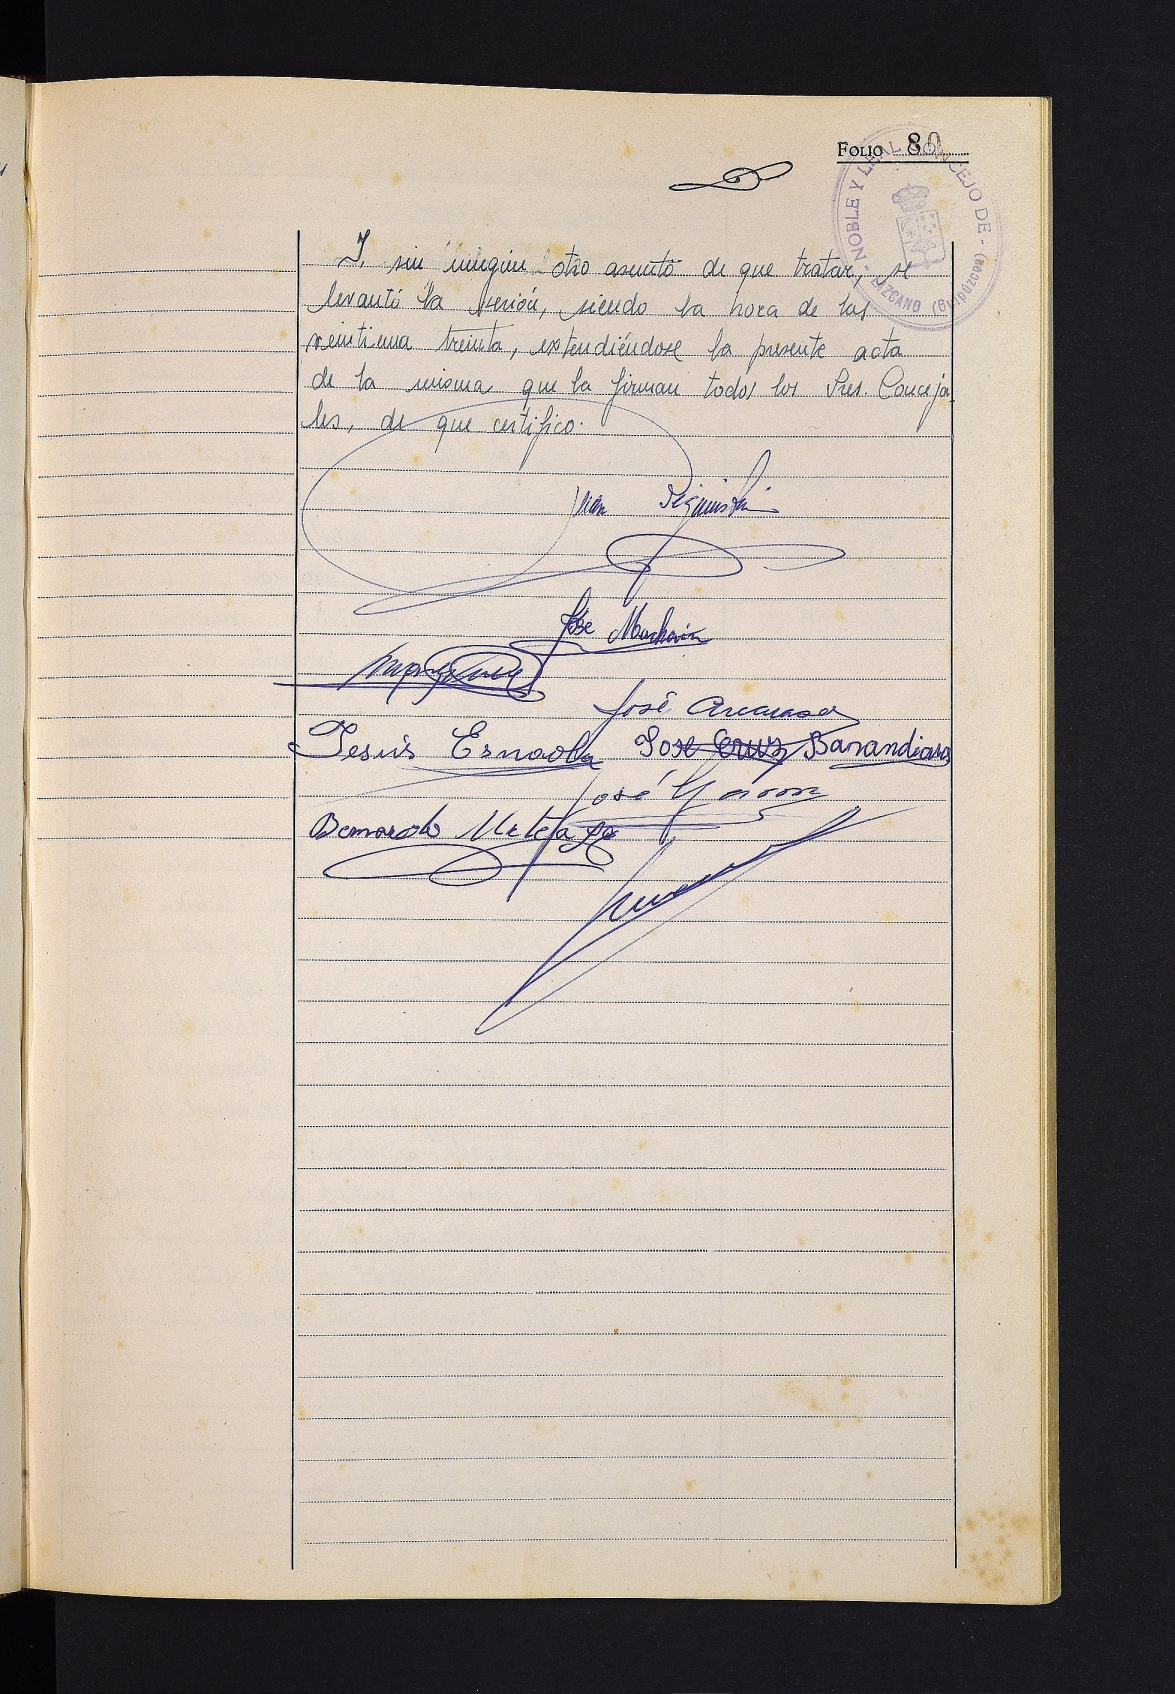 FOLIO 80
NOBLE Y LEAL CONCEJO DE - LAZCANO (Guipúzcoa) -
Y, sin ningún otro asunto de que tratar, se
levantó la sesión, siendo la hora de las
veintiuna treinta, extendiéndose la presente acta
de la misma que la firman todos los Sres. Conceja
les, de que certifico.
Juan
José
José
Jesús Esnaola José Cruz Barandiaran
José
Bernardo Urteaga